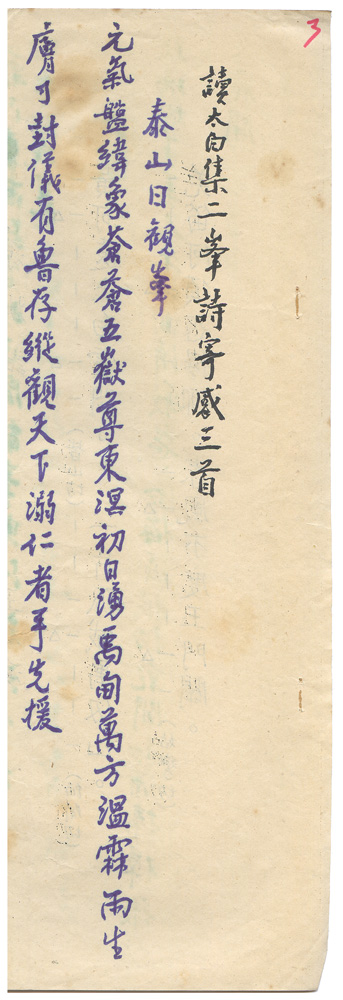 3
讀太白集二峯詩寄感三首
泰山日觀峯
元氣盤緯象蒼蒼五嶽尊東溟初日湧禹甸萬方温霖雨生
膚寸封儀有魯存縱觀天下溺仁者手先援